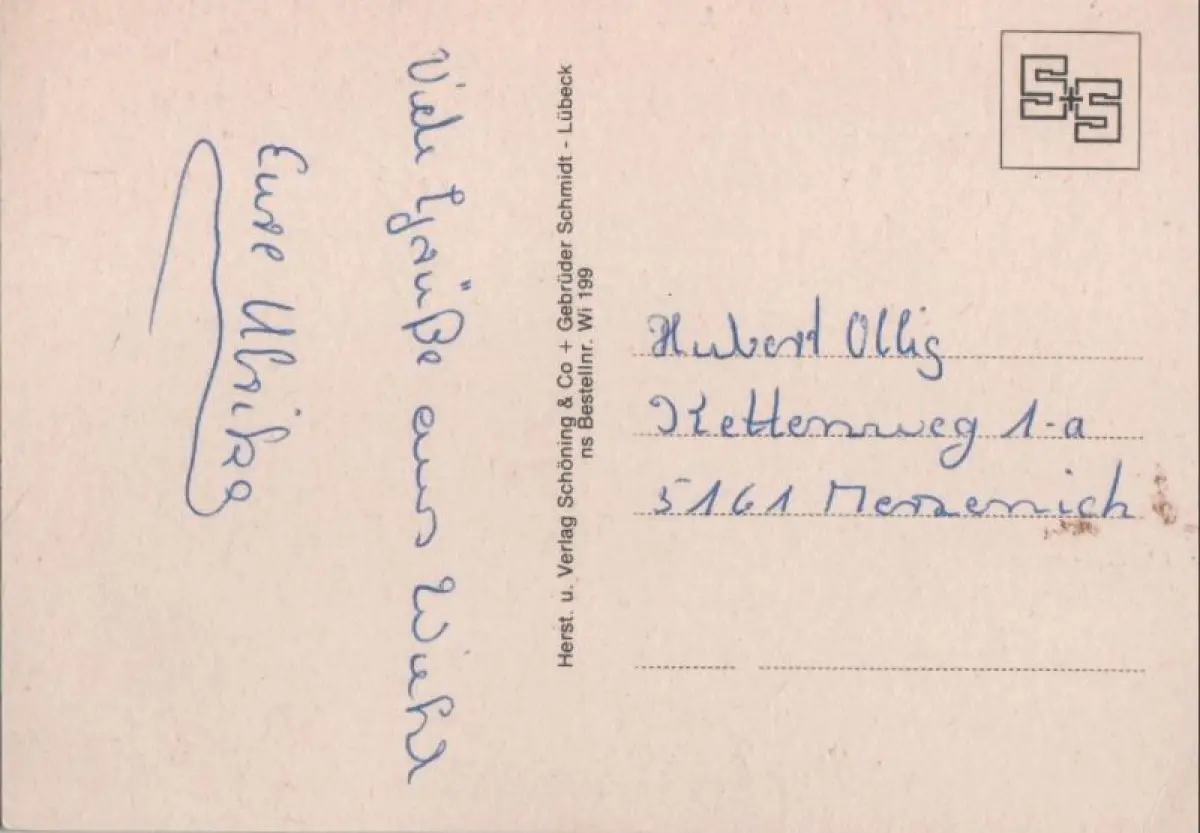 Viele Grüße aus Wiehl
Eure Ulrike
Herst. u. Verlag Schöning & Co + Gebrüder Schmidt - Lübeck
ns Bestellnr. Wi 199
S+S
Hubert Ollig
Kettenweg 1-a
5161 Merzenich